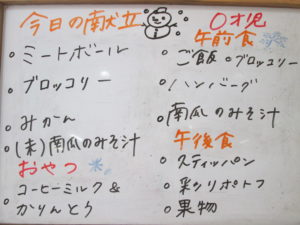 今日の献立
○ミートボール
○ブロッコリー
○みかん
○(ま)南瓜のみそ汁
おやつ
○コーヒーミルク&
かりんとう
0才児
午前食
○ご飯 ○ブロッコリー
○ハンバーグ
南瓜のみそ汁
午後食
○スティックパン
○彩りポトフ
○果物